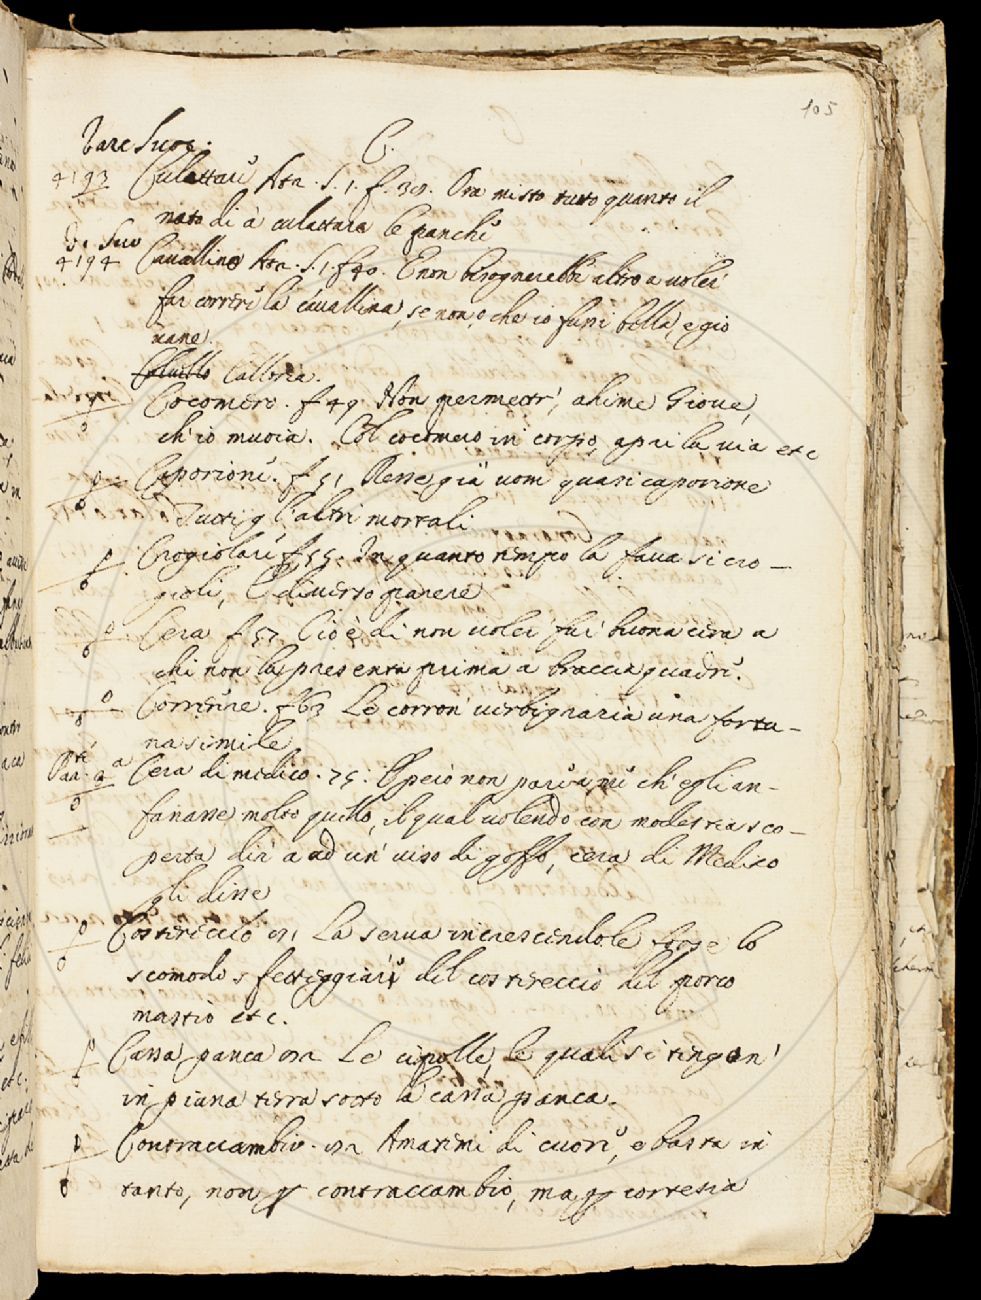 105
C.
4193 Culattari Atn. S. 1. f. 38. Ora misto tutto quanto il
nato di à culattare le panchi
4194 Cavallino Atn. S. 1. f. 40. E non bisognerebbi altro a volei
far correri la cavallina, se non, che io fussi bella, e gio
vane.
Calbria.
Cocomero. f 49. Non permettr', ahime Giove,
ch'io muoia. Col cocomero in corpo, apri la via etc
Caporioni. f 51, Resse già uom quasi caporione
Tutti gl'altri mortali
Crogiolari f 55. In quanto tempo la fava si cro-
gioli, E diverso parere
Cera f 57 Cioè di non volei fai buona cera a
chi non la presenta prima a braccia quadri.
Correnne. f 63 Le corron' verbigrazia una fortu-
na simile
Cera di medico. 75. E perciò non parvemi ch'egli an-
fanasse molto quello, il qual volendo con modestia sco-
perta dir' a ad un' viso di goffo, cera di Medico
gli disse
Costereccio La serva increscendole forse lo
scomodo sfetteggiari del costereccio del porco
mastio etc.
Cassa panca Le cipolle, le quali si tengon'
in piana terra sotto la cassa panca.
Contraccambio. Amatemi di cuori, e basta in
tanto, non p contraccambio, ma p cortesia